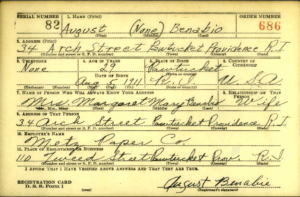 SERIAL NUMBER 1. NAME (Print) ORDER NUMBER
82 August (None) Benabio 686
2. ADDRESS (Print)
34 Arch Street Pawtucket Providence R.I
3. TELEPHONE 4. AGE IN YEARS 5. PLACE OF BIRTH 6. COUNTRY OF CITIZENSHIP
None 29 Pawtucket
DATE OF BIRTH
Aug 5, 1911 R.I. U.S.A
7. NAME OF PERSON WHO WILL ALWAYS KNOW YOUR ADDRESS 8. RELATIONSHIP OF THAT PERSON
Mrs. Margaret Mary Benabio Wife
9. ADDRESS OF THAT PERSON
34 Arch Street Pawtucket Providence R.I
10. EMPLOYER'S NAME
Metz Paper Co.
11. PLACE OF EMPLOYMENT OR BUSINESS
110 Street Pawtucket Prov. R.I
I AFFIRM THAT I HAVE VERIFIED ABOVE ANSWERS AND THAT THEY ARE TRUE.
REGISTRATION CARD
D. S. S. FORM 1
August Benabio